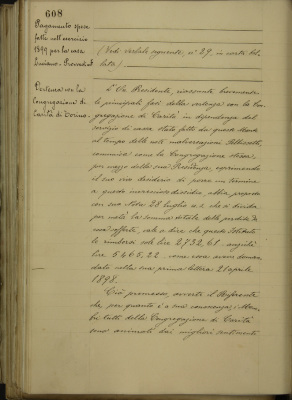 608
Pagamento spese
fatte nell'esercizio
1899 per la casa
Luciano-
(Vedi verbale seguente, n° 29, in carta bol-
lata)
Vertenza con la
Congregazione di
Carità di Torino.
Il Sig. Presidente, riassunte brevemente
le principali fasi della vertenza con la Con-
gregazione di Carità in dipendenza del
servizio di cassa stato fatto da questo Monte
al tempo delle note malversazioni
comunica come la Congregazione stessa
per mezzo della sua Presidenza, esprimendo
il suo vivo desiderio di porre un termine
a questo increscioso dissidio, abbia proposto
con sua Nota 28 luglio u.s. che si divida
per metà la somma totale della perdita di
cassa sofferta, vale a dire che questo Istituto
le rimborsi sole lire 2,732,61 anziché
lire 5465,22 come aveva doman-
dato nella sua prima lettera 21 aprile
1898.
Ciò premesso, avverte il Riferente
che per quanto è a sua conoscenza, i Mem-
bri tutti della Congregazione di Carità
sono animati dai migliori sentimenti